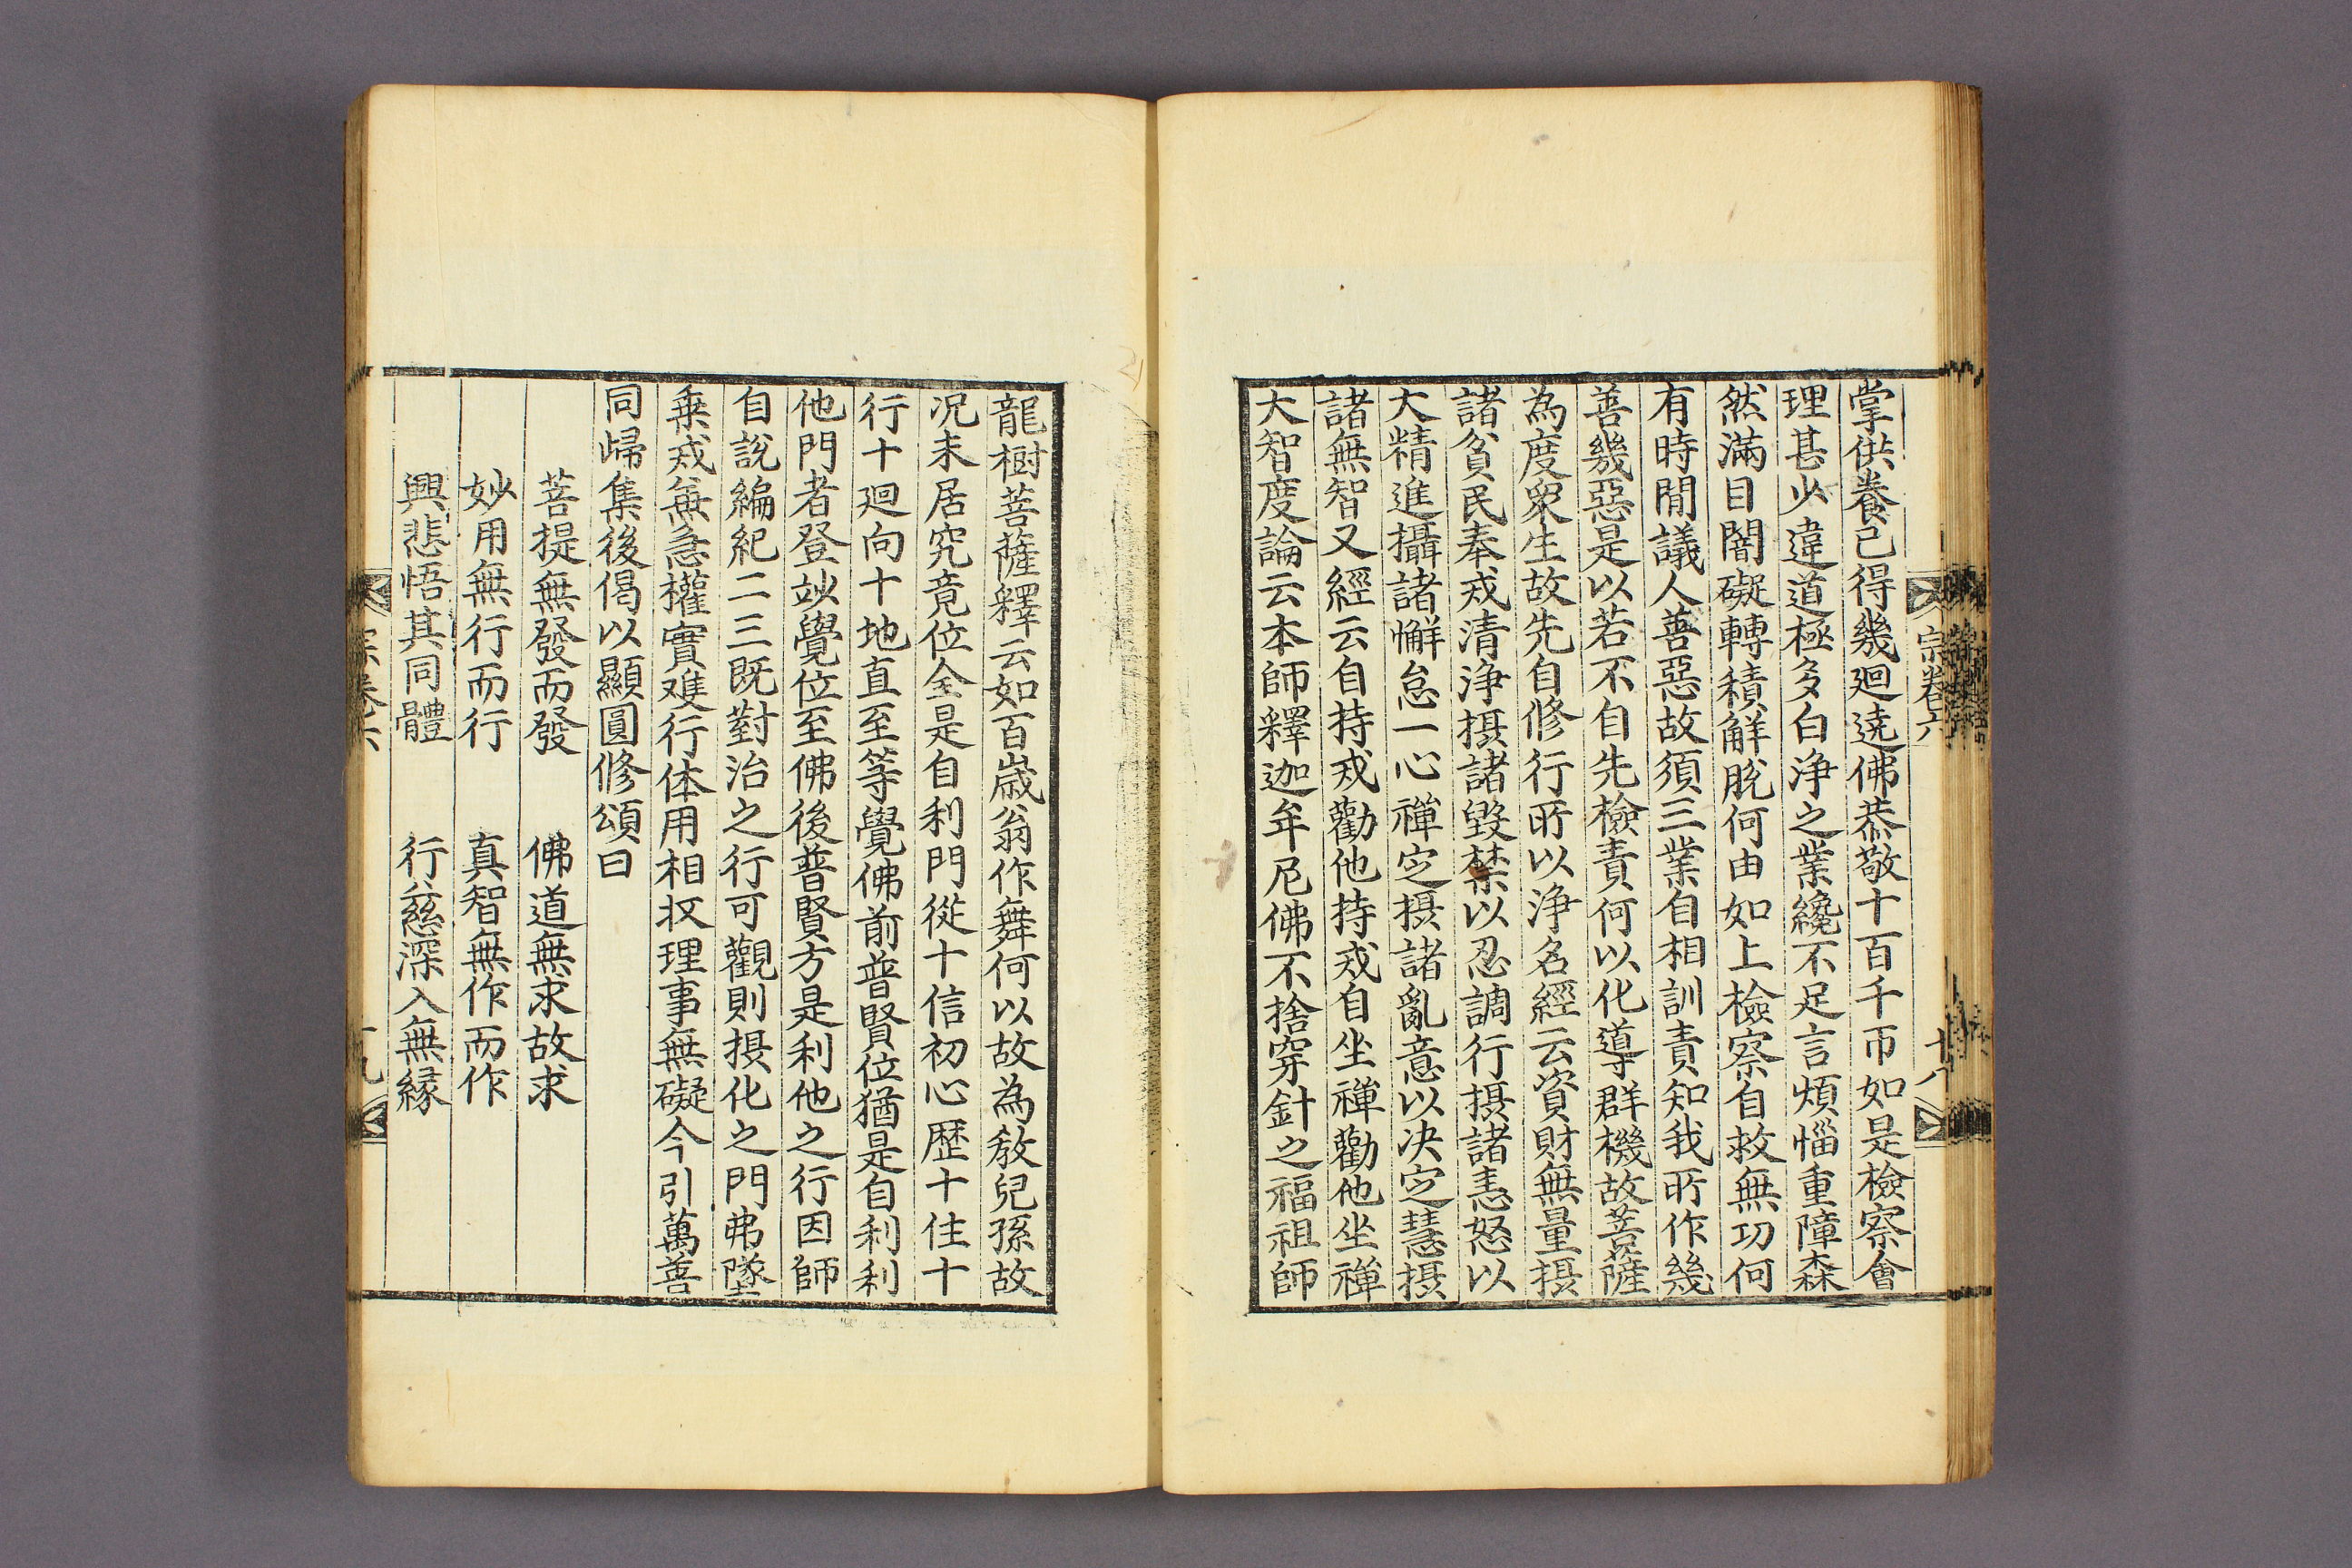 宗卷六
十八
掌供養已得幾廻遶佛恭敬十百千帀如是檢察會
理甚少違道極多白淨之業纔不足言煩惱重障森
然滿目闇礙轉積觧脫何由如上檢察自救無功何
有時閒議人善惡故須三業自相訓責知我所作幾
善幾惡是以若不自先檢責何以化導群機故菩薩
為度衆生故先自修行所以淨名經云資財無量摂
諸貧民奉戒清淨摂諸毀禁以忍調行摂諸恚怒以
大精進攝諸懈怠一心禪定摂諸亂意以决定慧摂
諸無智又經云自持戒勸他持戒自坐禪勸他坐禪
大智度論云本師釋迦牟尼佛不捨穿針之福祖師
龍樹菩薩釋云如百歲翁作舞何以故為敎兒孫故
况未居究竟位全是自利門從十信初心歷十住十
行十廻向十地直至等覺佛前普賢位猶是自利利
他門者登妙覺位至佛後普賢方是利他之行因師
自說編紀二三旣對治之行可觀則摂化之門弗墜
乗戒無急權實难行体用相収理事無礙今引萬善
同歸集後偈以顯圓修頌曰
菩提無發而發　佛道無求故求
妙用無行而行　真智無作而作
興悲悟其同體　行慈深入無緣
宗卷六
十九